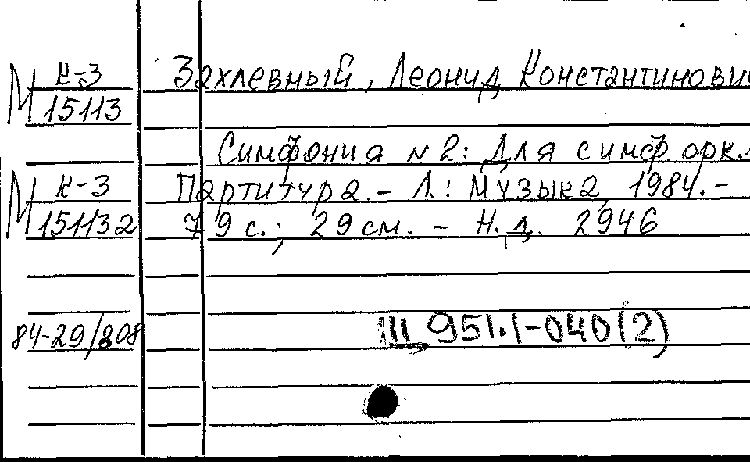 К-3 Захлевный, Леонид Константинович
М 15113
Симфония № 2: Для симф орк.
М К-3 Партитура. - Л.: Музыка, 1984. -
151132 79 с.; 29 см. - Н.д. 2946
84-29/208 Ш 951.1-040(2)